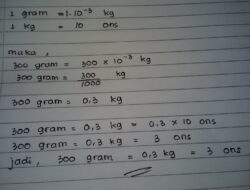 1 gram = 1.10⁻³ kg
1 kg = 10 ons
maka,
300 gram = 300 × 10⁻³ kg
300 gram = 300/1000 kg
300 gram = 0,3 kg
300 gram = 0,3 kg = 0,3 × 10 ons
300 gram = 0,3 kg = 3 ons
jadi, 300 gram = 0,3 kg = 3 ons